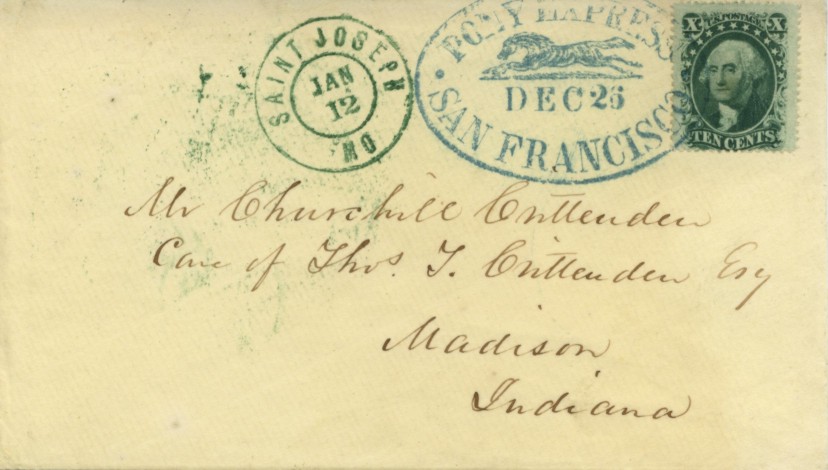 SAINT JOSEPH
JAN
12
MO
PONY EXPRESS
DEC 26
SAN FRANCISCO
X U.S. POSTAGE X
TEN CENTS
Mr Churchill Crittenden
Care of Thos. T. Crittenden Esq
Madison
Indiana